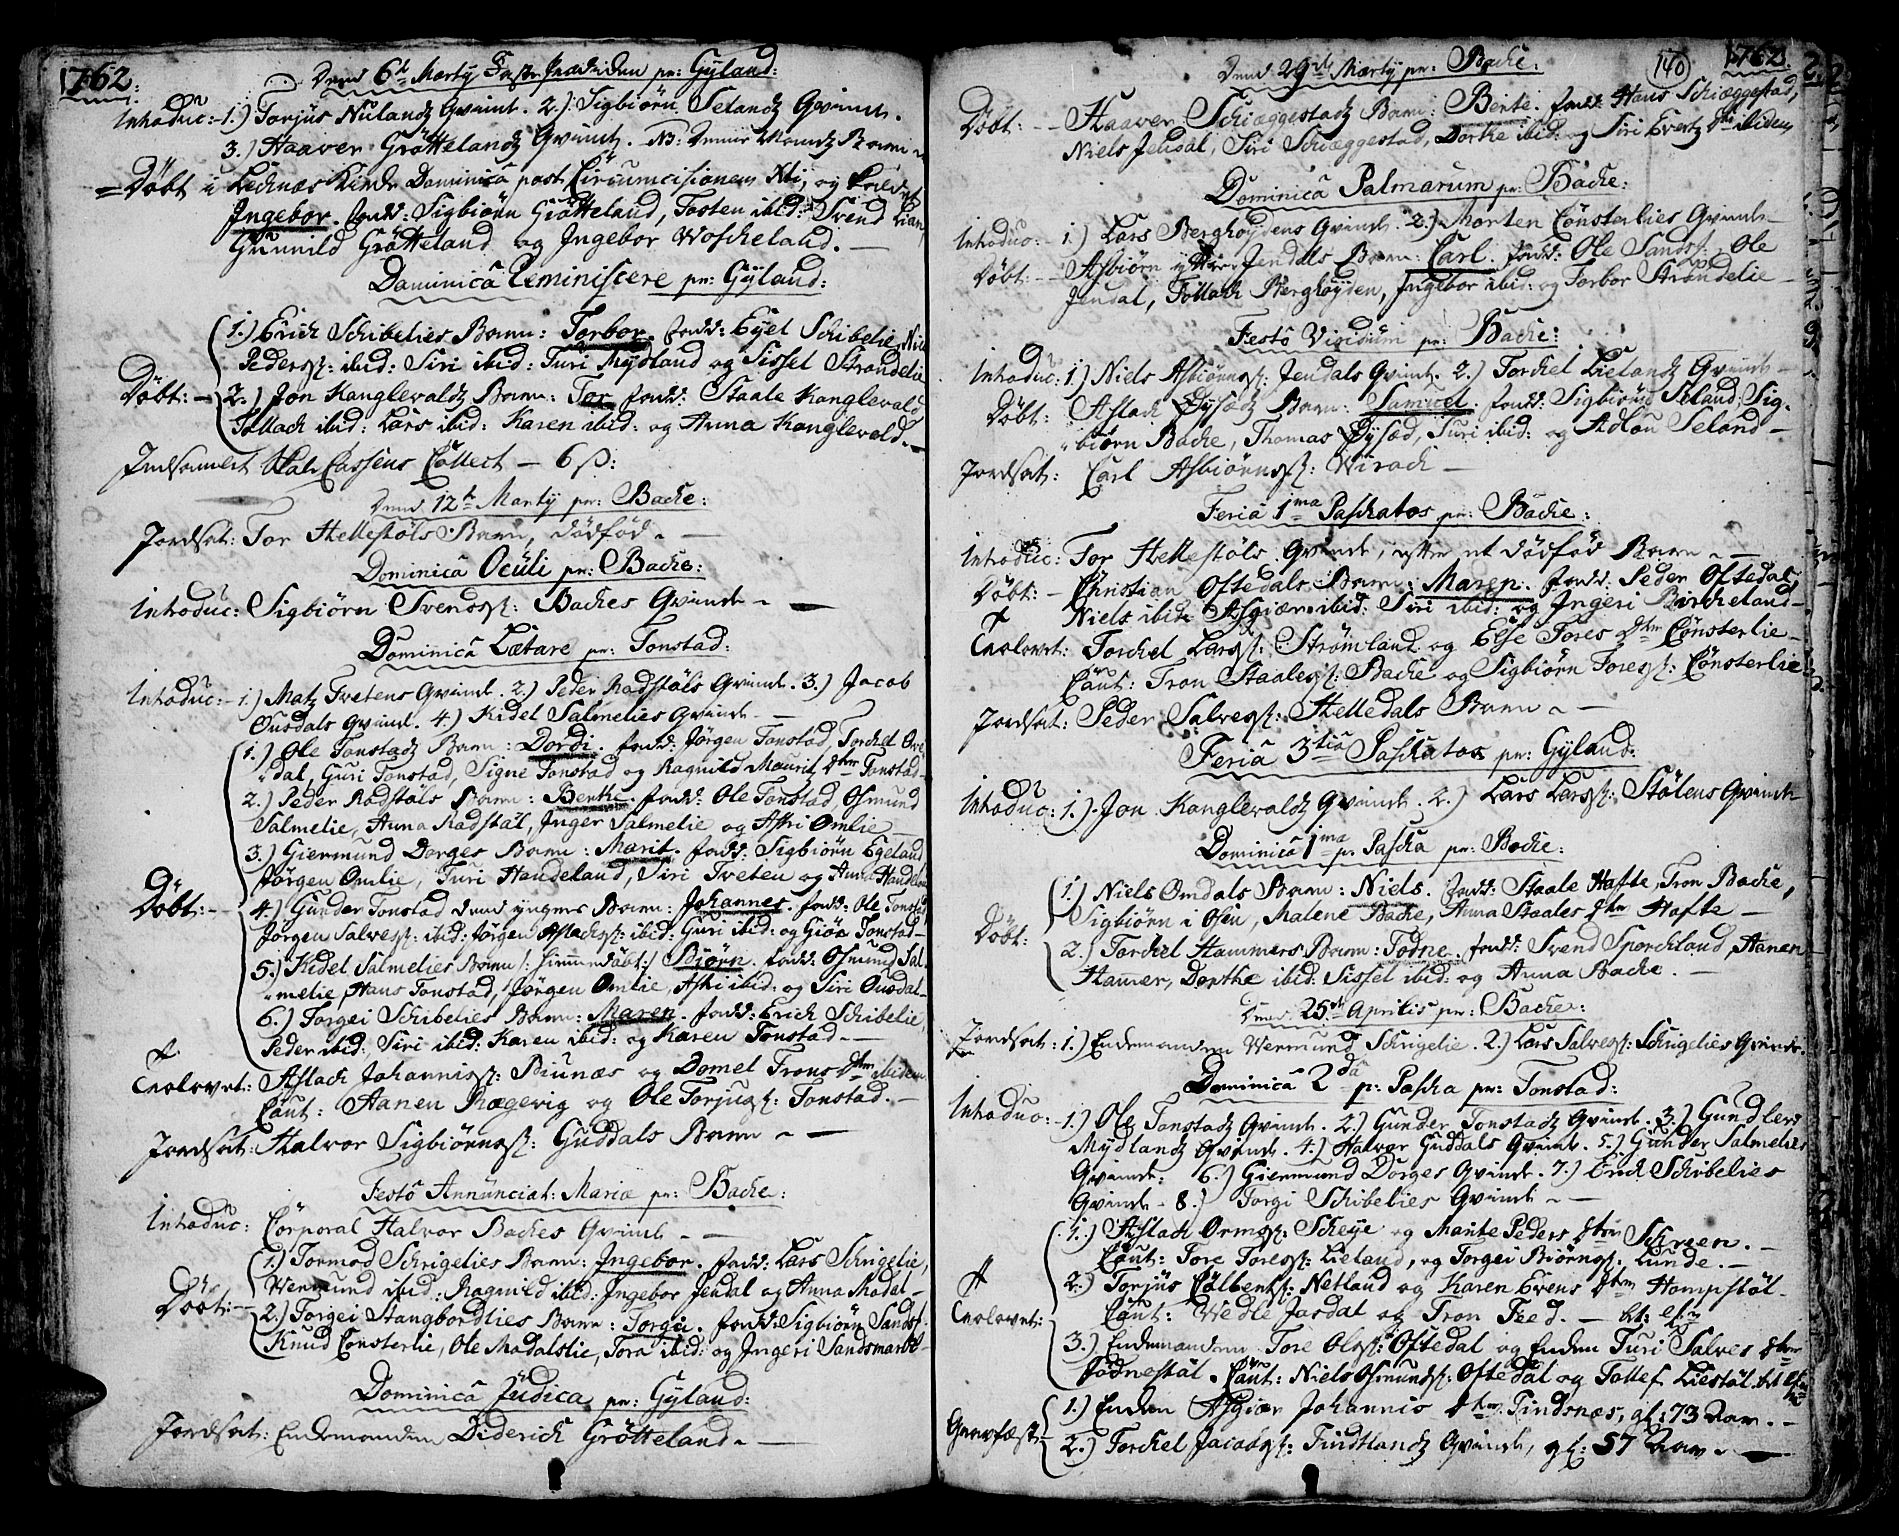 1762.
Dend 6te Martij Faste Prædiken pr: Gyland:
Introduc: 1.) Torjus Nulandz Qvinde. 2.) Sigbiörn Selandz Qvinde.
3.) Haaver Gröttelandz Qvinde. NB: Barn
Döbt i Dominica post Circumcisionem Xti, og
Ingebor. fadd: Sigbiörn Grötteland, Tosten ibid: Svend
Gunnild Grötteland og Ingebor Woscheland.
Dominica Reminiscere pr: Gyland:
1.) Erich Schibelies Barn: Torbor. fadd: Eyel Schibelie, Niels
Peders: ibid: Siri ibid: Turi Mysland og Sissel Strandelie
Döbt: 2.) Jon Kanglevaldz Barn: Tor fadd: Staale Kanglevald
Tollach ibid: Lars ibid: Karen ibid: og Anna Kanglevald.
Collect - 6 ß:
Dend 12te Martij pr: Backe:
Jordsat: Tor Hellestöls Barn, dödfød.
Dominica Oculi pr: Backe:
Introduc: Sigbiörn Svends: Backes Qvinde
Dominica Lætare pr: Tonstad:
Introduc: 1.) Matz Tvetens Qvinde. 2.) Peder Radstöls Qvinde. 3.) Jacob
Ousdals Qvinde. 4.) Kidel Salmelies Qvinde
1.) Ole Tonstadz Barn: Dordi. fadd: Jörgen Tonstad, Torchel
dal, Guri Tonstad, Signe Tonstad og Ragnild Mauritz Dtter Tonstad
2.) Peder Radstöls Barn: Bentke. fadd: Ole Tonstad, Osmund
Salmelie, Anna Radstöl, Inger Salmelie og Astri Omlie
3.) Giermund Dorges Barn: Marit. fadd: Sigbiörn Egeland
Jörgen Omlie, Turi Haudeland, Siri Tveten og Anna
Döbt: 4.) Gunder Tonstad dend yngres Barn: Johannes. fadd: Ole Tonstad
Jörgen Salves: ibid: Jörgen Aslachs: ibid: Guri ibid: og Giöa Tonstad
5.) Kidel Salmelies Barn /: hiemmedöbt :/ Biörn. fadd: Osmund Sal-
melie, Hans Tonstad, Jörgen Omlie, Astri ibid: og Siri Ousdal
6.) Torgei Schibelies Barn: Maren. fadd: Erich Schibelie,
Peder ibid: Siri ibid: Karen ibid: og Karen Tonstad.
Trolovet: Aslach Johannis: Biunæs og Domel Trons Dtter ibidem
Caut: Aanen Rægevig og Ole Torjus: Tonstad.
Jordsat: Halvor Sigbiörns: Guddals Barn
Festo Annunciat: Mariæ pr: Backe:
Introduc: Corporal Halvor Backes Qvinde
1.) Tormod Schrigelies Barn: Ingebor. fadd: Lars Schrigelie,
Wermund ibid: Ragnild ibid: Ingebor Jendal og Anna Madal-
Döbt: 2.) Torgei Stangbordlies Barn: Torgei. fadd: Sigbiörn Sands:
Knud Consterlie, Ole Madalslie, Tora ibid: og Ingeri Sandsmark
Dominica Judica pr: Gyland:
Jordsat: Endemanden Diderich Grötteland.
140 1762.
Dend 29de Martij pr: Backe:
Döbt: Haaver Schiæggestadz Barn: Bente. fadd: Hans Schiæggestad,
Niels Jendal, Siri Schiæggestad, Dortke ibid: og Siri Evertz Dtr ibidem
Dominica Palmarum pr: Backe:
Introduc: 1.) Lars Berghöydens Qvinde. 2.) Morten Consterlies Qvinde
Döbt: Asbiörn Jendals Barn: Carl. fadd: Ole Sands: Ole
Jendal, Tollach Berghöyden, Ingebor ibid: og Torbor Strandelie
Festo Viridium pr: Backe:
Introduc: 1.) Niels Asbiörns: Jendals Qvinde. 2.) Torchel Lielandz Qvinde
Döbt: Aslach Dysædz Barn: Samuel. fadd: Sigbiörn Seland, Sig-
biörn Backe, Thomas Dysæd, Turi ibid: og Adlou Seland
Jordsat: Carl Asbiörns: Wirach
Feria 1ma Paschatos pr: Backe:
Introduc: Tor Hellestöls Qvinde, efter et dødfød Barn
Döbt: Christian Oftedals Barn: Maren. fadd: Peder Oftedal,
Niels ibid: Asgiær ibid: Siri ibid: og Ingeri Bircheland
Trolovet: Torchel Lars: Strömland og Else Tores Dtter Consterlie
Caut: Tron Staales: Backe og Sigbiörn Tores: Consterlie
Jordsat: Peder Salves: Helledals Barn
Feria 3tia Paschatos pr: Gyland:
Introduc: 1.) Jon Kanglevaldz Qvinde. 2.) Lars Lars: Stölens Qvinde
Dominica 1ma p: Pascha pr: Backe:
1.) Niels Omdals Barn: Niels. fadd: Staale Hafte, Tron Backe,
Sigbiörn i Osen, Malene Backe, Anna Staales Dtter Hafte
Döbt: 2.) Torchel Hammers Barn: Todne. fadd: Svend Sporchland, Aanen
Hammer, Dorthe ibid: Sissel ibid: og Anna Backe.
Dend 25de Aprilis pr: Backe:
Jordsat: 1.) Endemanden Wermund Schrigelie. 2.) Lars Salves: Schrigelies Qvinde.
Dominica 2da p: Pascha pr: Tonstad:
Introduc: 1.) Ole Tonstadz Qvinde. 2.) Gunder Tonstadz Qvinde. 3.) Gundlers
Mydlandz Qvinde. 4.) Halvor Guddals Qvinde. 5.) Gunder Salmelies
Qvinde: 6.) Giermund Dorges Qvinde. 7.) Erich Schibelies
Qvinde. 8.) Torgi Schibelies Qvinde
1.) Aslach Orms: Scheye og Mante Peders Dtter Schreen.
Caut: Tore Tores: Lieland, og Torgei Biörns: Lunde.
2.) Torjus Colbents: Netland og Karen Evens Dtter Hompstöl.
Trolovet: Caut: Wedle Josdal og Tron Feed.
3.) Endemanden Tore Ols: Oftedal og Enden Turi Salves Dtter
Jödnestöl. Caut: Niels Osmunds: Oftedal og Tollef Liestöl.
Gravfæst: 1.) Enden Asgiær Johannis Dtter Tindsnæs, gl: 73 Aar.
2.) Torchel Jacobs: Findtlandz Qvinde, gl: 57 Aar.